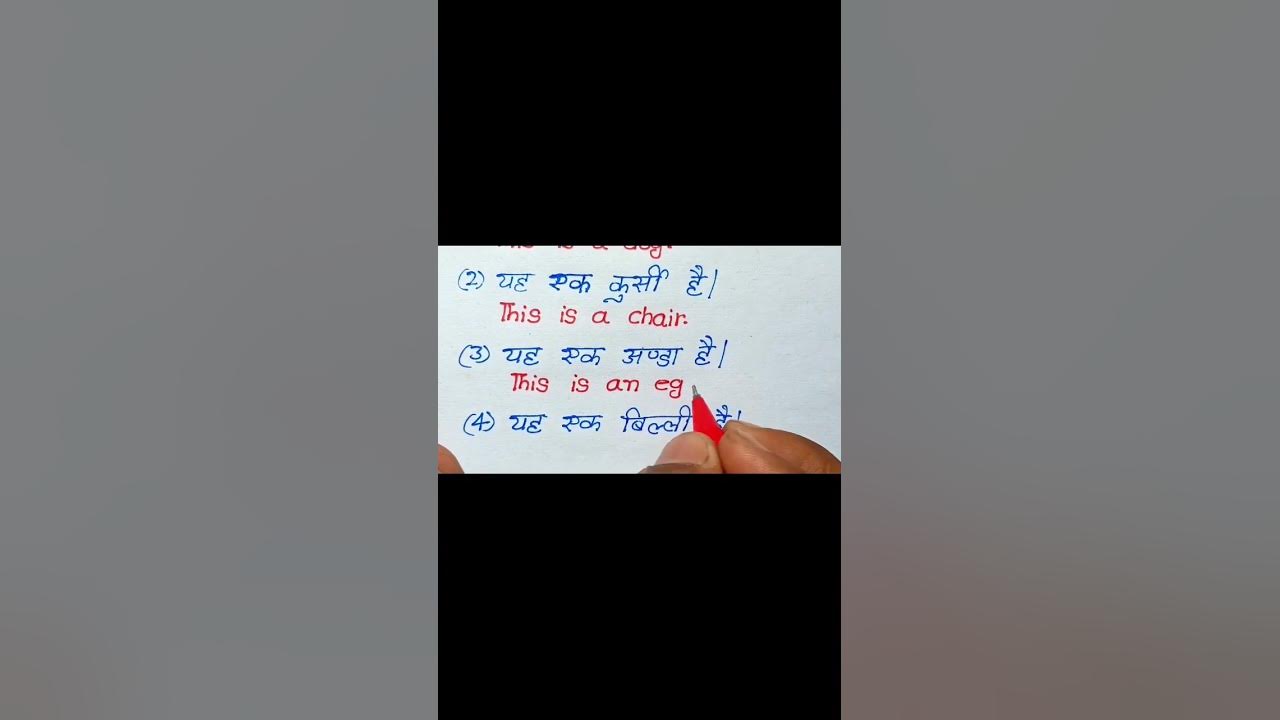 This is a dog.
(2) यह एक कुर्सी है|
This is a chair.
(3) यह एक अण्डा है|
This is an eg
(4) यह एक बिल्ली है|